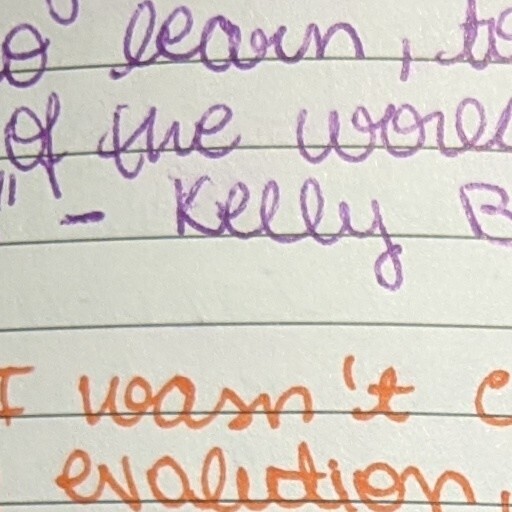 o learn, to
of the worl
" - Kelly B
I wasn't c
evalution,